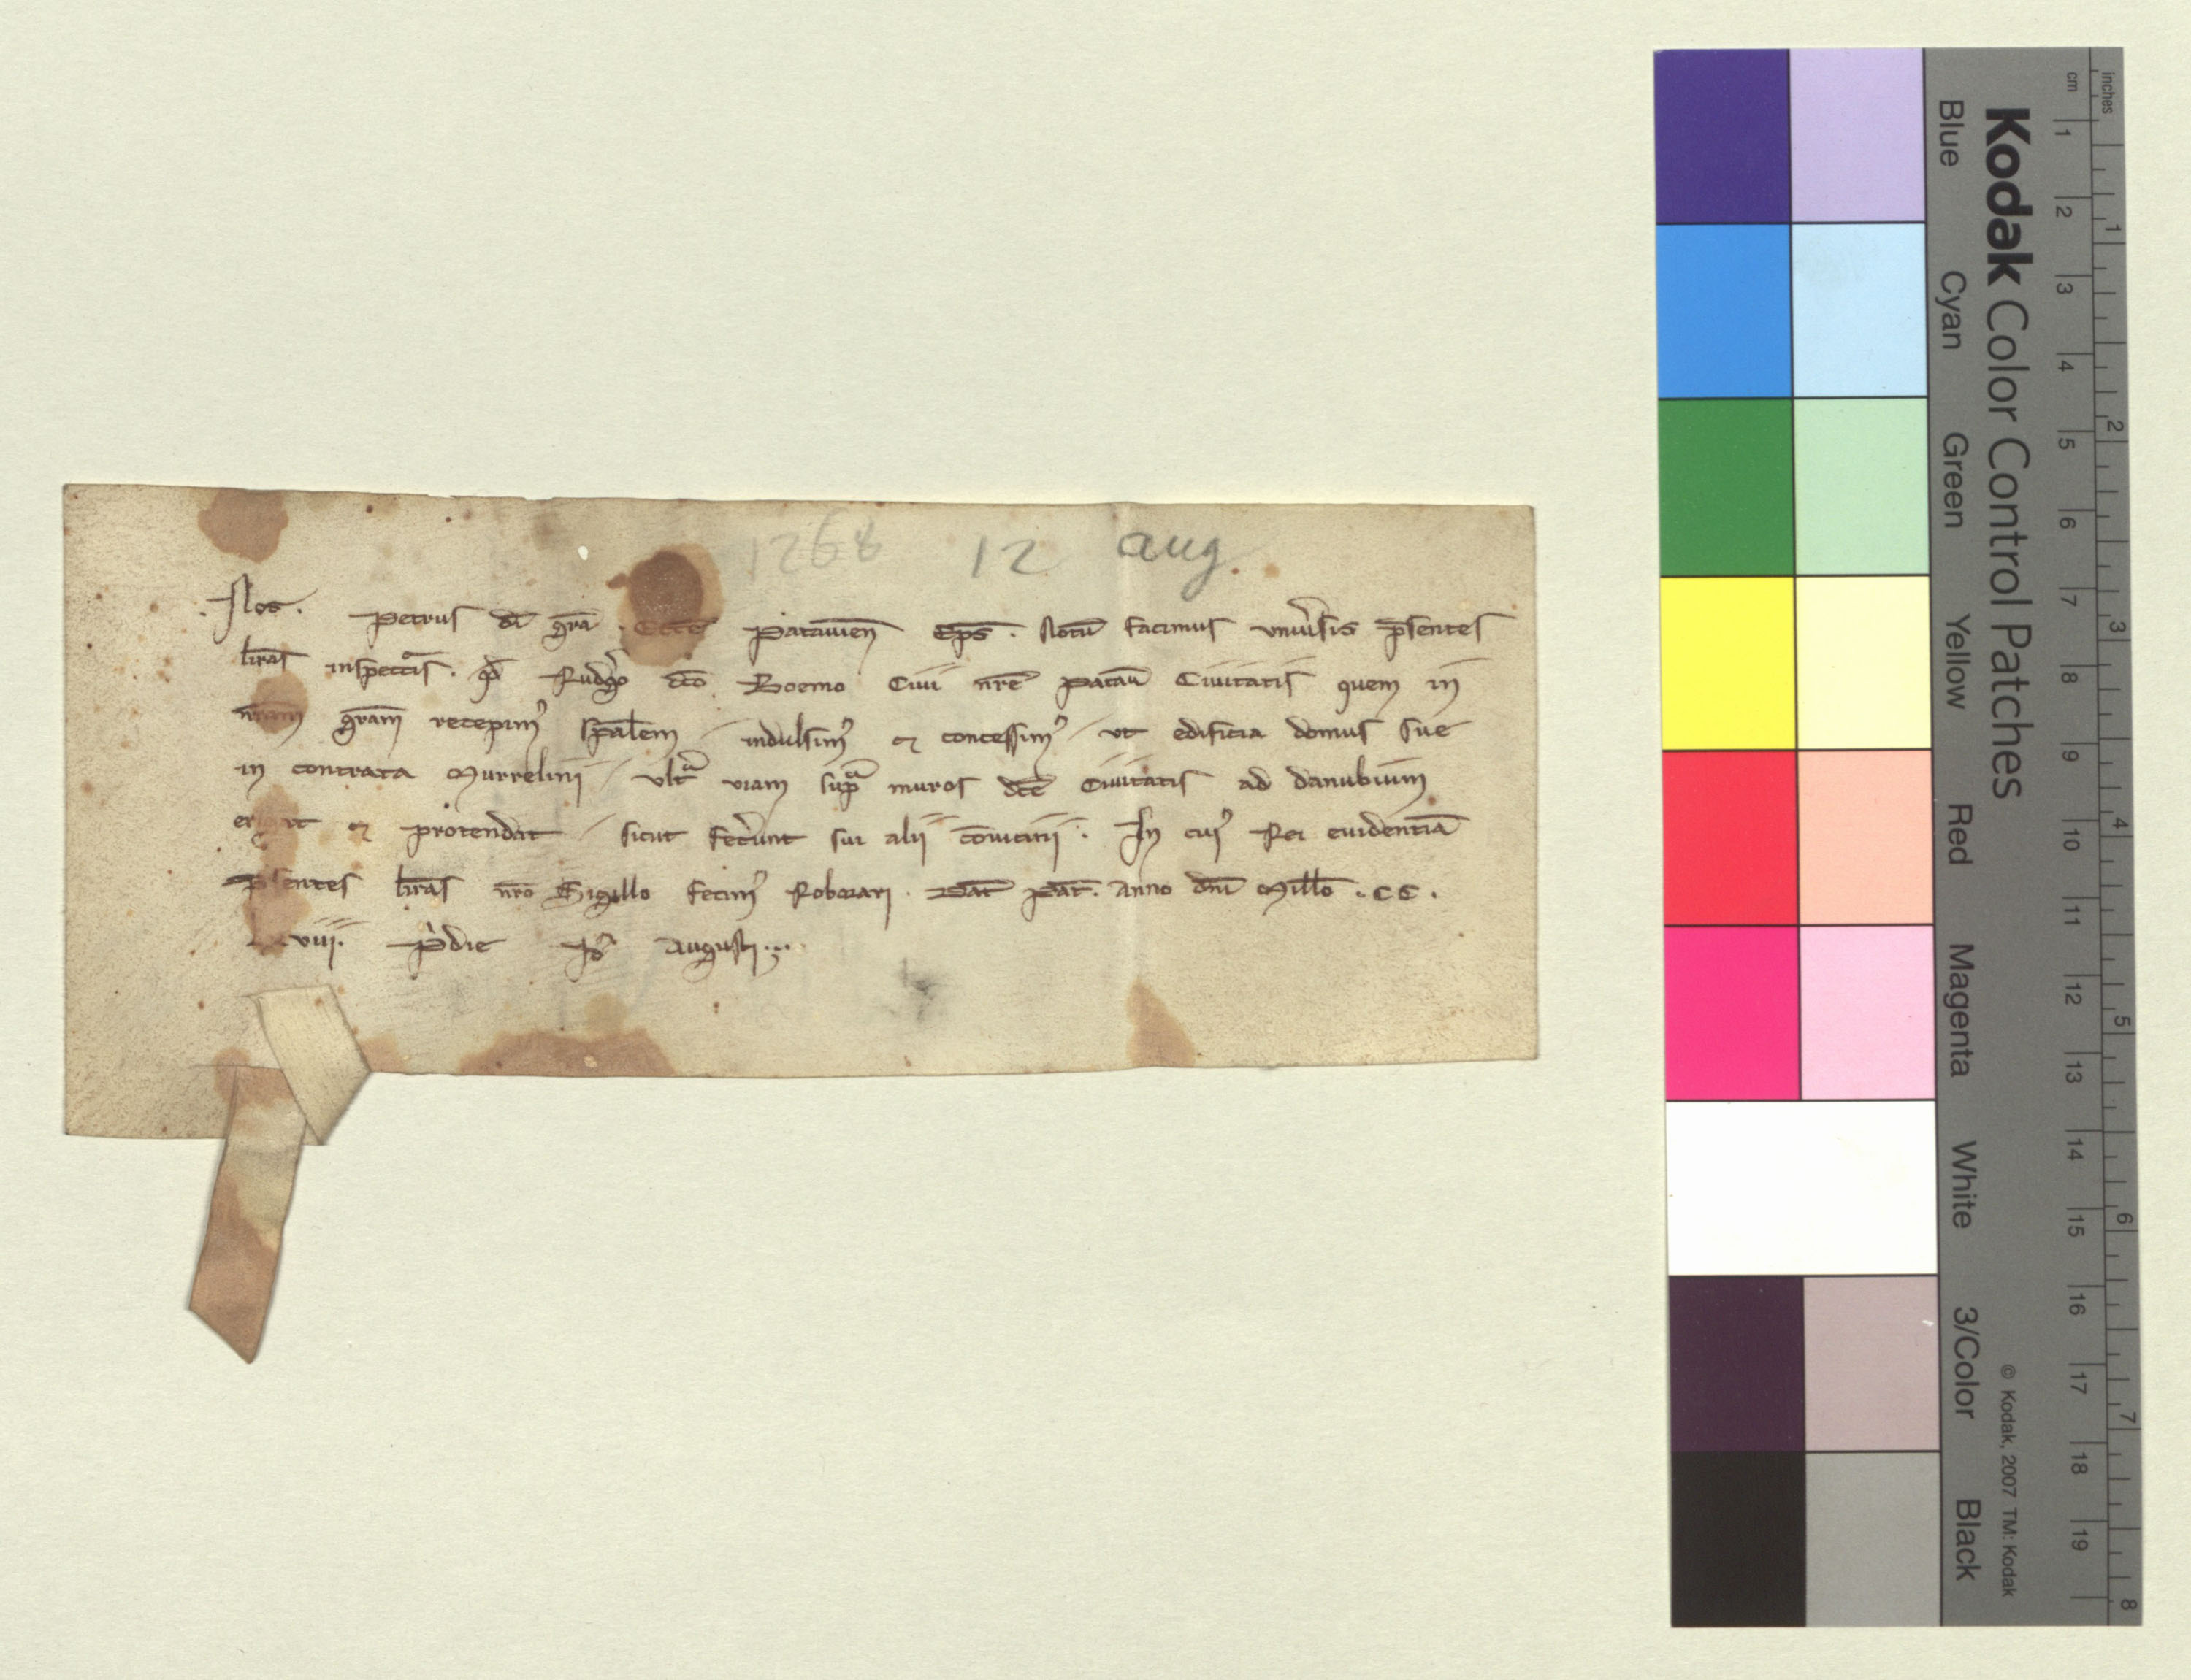 1268 12 aug.
. Nos . Petrus dī gr̄a . Ecc̄e Patauień Ep̄s . Notū facimus vniu̾sis p̄sentes
lr̄as inspectᵃis . qd̄ Rudg̾o dc̄o Boemo Ciui nr̄e Pataū Ciuitatis quem in
nr̄am gr̄am recepimꝰ sp̄alem / indulsimꝰ ⁊ concessimꝰ / vt edificia domus sue
in contrata Murrelini / vltᵃ viam supᵃ muros dc̄e Ciuitatis ad danubium
erigat ⁊ protendat / sicut fec̾unt sui alii cōuicinii . In cuiꝰ Rei euidentiā
p̄sentes lr̄as nr̄o Sigillo fecimꝰ Roborari . Dat̄ Pat̄ . Anno dn̄i Mill̄o . CC .
Lxviii . Pⁱdie Idꝰ Augusti
Kodak Color Control Patches
Blue Cyan Green Yellow Red Magenta White 3/Color Black
© Kodak, 2007 TM: Kodak
inches 1 2 3 4 5 6 7 8
cm 1 2 3 4 5 6 7 8 9 10 11 12 13 14 15 16 17 18 19